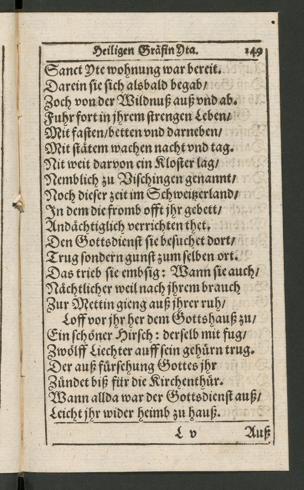 Heiligen Gräfin Yta. 149
Sanct Yte wohnung war bereit.
Darein sie sich alsbald begab/
Zoch von der Wildnuß auß vnd ab.
Fuhr fort in jhrem strengen Leben/
Mit fasten/betten vnd darneben/
Mit stätem wachen nacht vnd tag.
Nit weit darvon ein Kloster lag/
Nemblich zu Vischingen genannt/
Noch dieser zeit im Schweitzerland/
In dem die fromb offt jhr gebett/
Andächtiglich verrichten thet.
Den Gottsdienst sie besuchet dort/
Trug sondern gunst zum selben ort.
Das trieb sie embsig: Wann sie auch/
Nächtlicher weil nach jhrem brauch
Zur Mettin gieng auß jhrer ruh/
Loff vor jhr her dem Gottshauß zu/
Ein schöner Hirsch: derselb mit fug/
Zwölff Liechter auff sein gehürn trug.
Der auß fürschung Gottes jhr
Zündet biß für die Kirchenthür.
Wann allda war der Gottsdienst auß/
Leicht jhr wider heimb zu hauß.
L v Auß